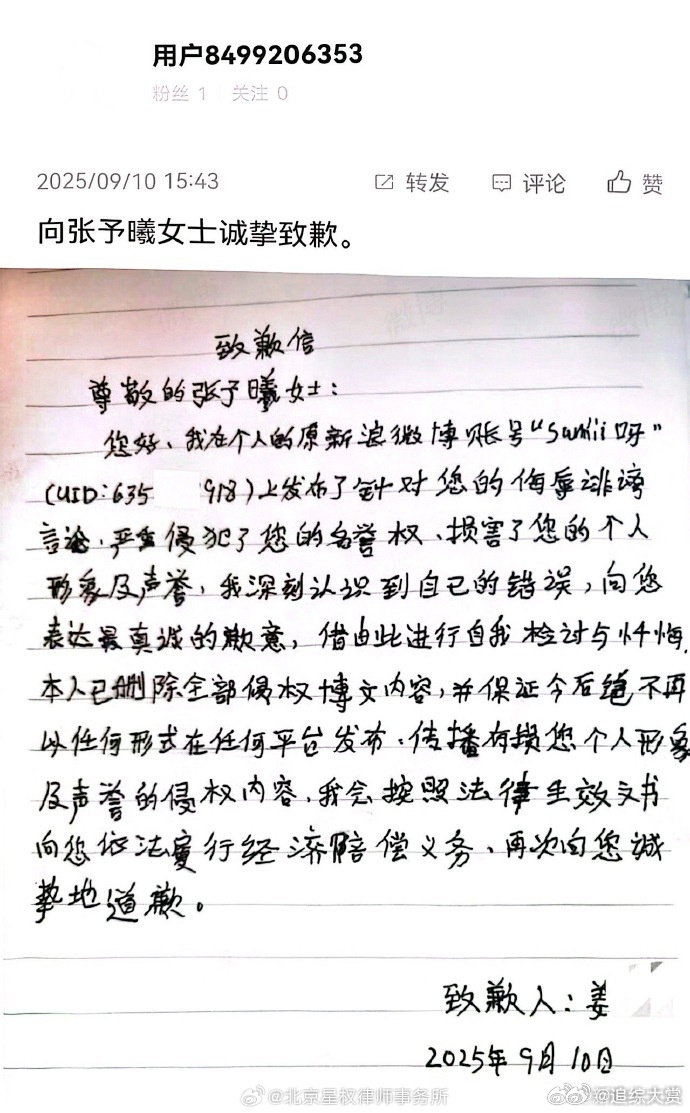 用户8499206353
粉丝 1 关注 0
2025/09/10 15:43 转发 评论 赞
向张予曦女士诚挚致歉。
致歉信
尊敬的张予曦女士：
您好、我在个人的原新浪微博账号“Sunkii呀”
(UID:635 918)上发布了针对您的侮辱诽谤
言论、严重侵犯了您的名誉权、损害了您的个人
形象及声誉，我深刻认识到自己的错误，向您
表达最真诚的歉意，借由此进行自我检讨与忏悔，
本人已删除全部侵权博文内容，并保证今后绝不再
以任何形式在任何平台发布、传播有损您个人形象
及声誉的侵权内容，我会按照法律生效文书
向您依法履行经济赔偿义务、再次向您诚
挚地道歉。
致歉人：姜
2025年9月10日
@北京星权律师事务所
@追综大赏